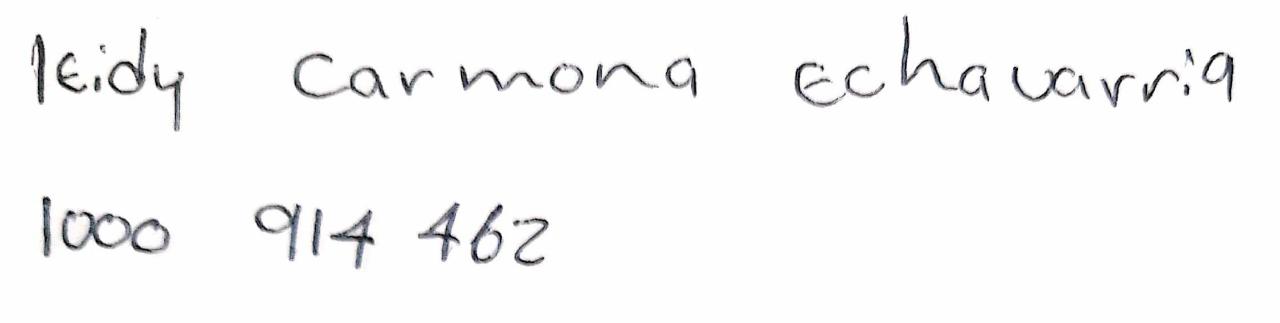 leidy carmona Echavarria
1000 914 462